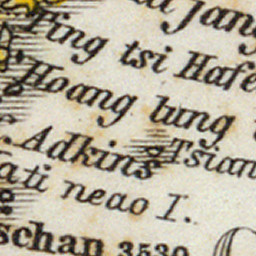 Jang
Ting tsi Hafe
Hoang lung
Adkins Tsian
ati neao I.
schan 3530